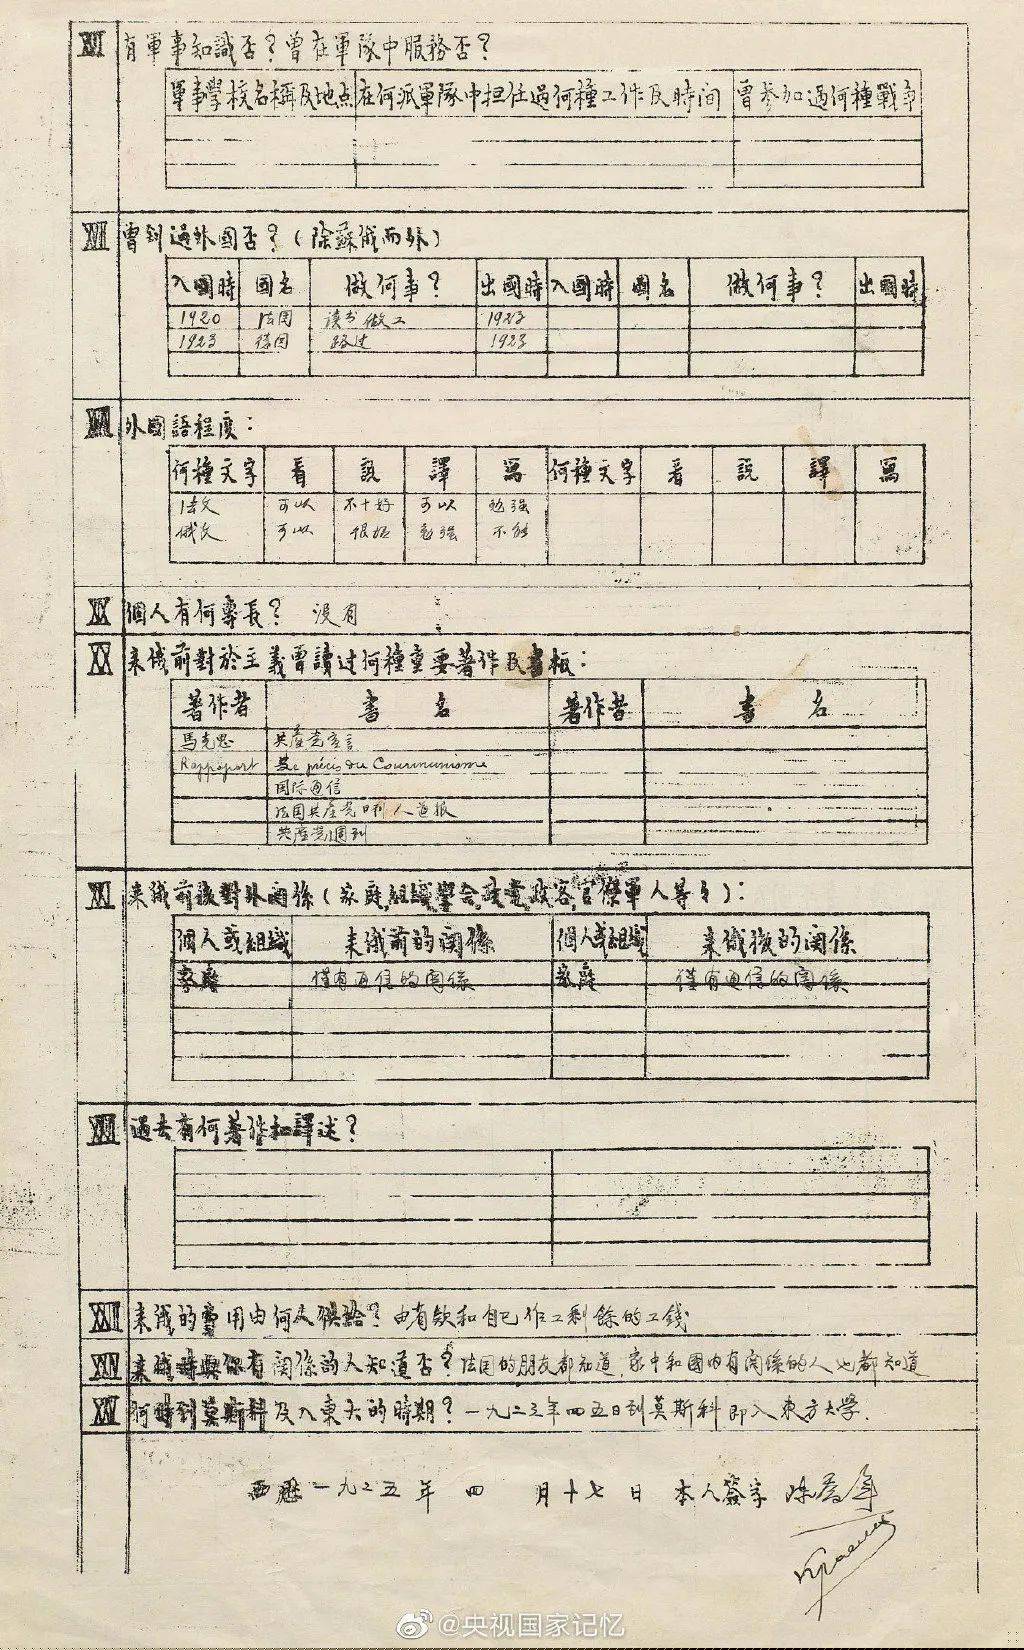 有軍事知識否？曾在軍隊中服務否？
軍事學校名稱及地点 在何派軍隊中担任过何種工作及時間 曾参加过何種戰爭
XVII 曾到過外國否？（除蘇俄而外）
入國時 國名 做何事？ 出國時 入國時 國名 做何事？ 出國時
1920 法国 读书 做工 1923
1923 德国 路过 1923
XVIII 外國語程度：
何種文字 看 説 譯 寫 何種文字 看 説 譯 寫
法文 可以 不十好 可以 勉强
俄文 可以 很坏 勉强 不能
XIX 個人有何專長？ 没有
XX 来俄前對於主義曾讀过何種重要著作及書板：
著作者 書名 著作者 書名
馬克思 共産党宣言
Rappoport précis du Communisme
国际通信
法国共産党 人道报
共産党週刊
XXI 来俄前後對外関係（家庭,組織,學会,政党,政客,官僚軍人等々）：
個人或組織 来俄前的関係 個人或組織 来俄後的関係
家庭 僅有通信的関係 家庭 僅有通信的関係
XXII 過去有何著作和譯述？
XXIII 来俄的費用由何人供給？ 由 和自己作工剩餘的工錢
XXIV 来俄時與你有関係的人知道否？ 法国的朋友都知道,家中和國内有関係的人也都知道
XXV 何時到莫斯科及入東大的時期？ 一九二三年四 五日到莫斯科即入東方大学.
西歷一九二五年 四 月十七日 本人簽字 陈喬年
@央视国家记忆